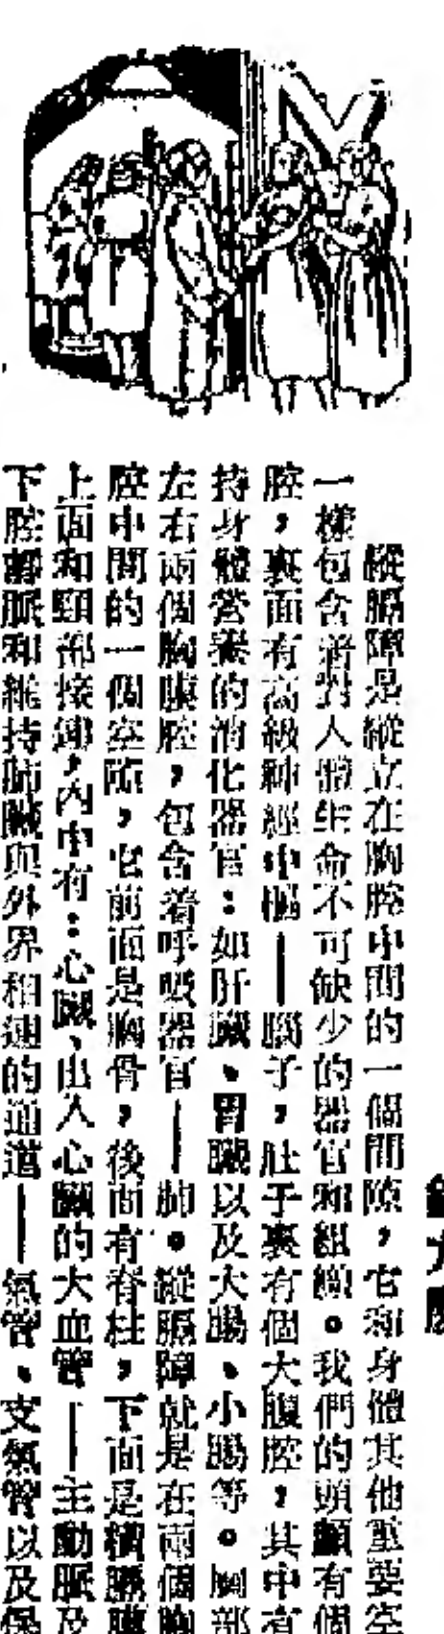 縱膈障是縱立在胸腔中間的一個間隙，它和身體其他重要空
一樣包含着對人體生命不可缺少的器官和組織。我們的頭顱有個
腔，裏面有高級神經中樞——腦子，肚子裏有個大腹腔，其中有
持身體營養的消化器官：如肝臟、胃臟以及大腸、小腸等。胸部
左右兩個胸膜腔，包含着呼吸器官——肺。縱膈障就是在兩個胸
腔中間的一個空隙，它前面是胸骨，後面有脊柱，下面是橫膈膜
上面和頸部接鄰，內中有：心臟、出入心臟的大血管——主動脈及
下腔靜脈和維持肺臟與外界相連的通道——氣管、支氣管以及保